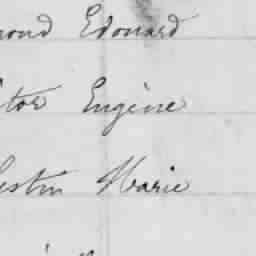 mond Edouard
ctor Eugène
lestin Marie